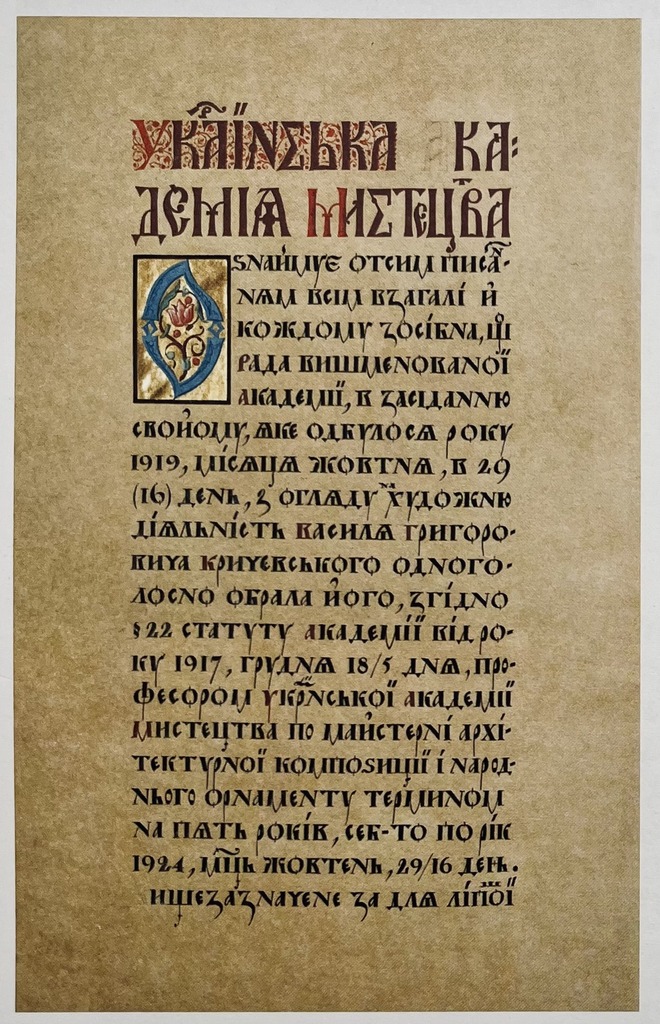 УКРАЇНСЬКА АКА-
ДЕМІЯ МИСТЕЦТВА
ОЗНАЙМУЄ ОТСИМ ПИСА-
НЯМ ВСІМ ВЗАГАЛІ Й
КОЖДОМУ ЗОСІБНА, ЩО
РАДА ВИШМЕНОВАНОЇ
АКАДЕМІЇ, В ЗАСІДАННЮ
СВОЙОМУ, ЯКЕ ОДБУЛОСЯ РОКУ
1919, МІСЯЦЯ ЖОВТНЯ, В 29
(16) ДЕНЬ, З ОГЛЯДУ ХУДОЖНЮ
ДІЯЛЬНІСТЬ ВАСИЛЯ ГРИГОРО-
ВИЧА КРИЧЕВСЬКОГО ОДНОГО-
ЛОСНО ОБРАЛА ЙОГО, ЗГІДНО
§22 СТАТУТУ АКАДЕМІЇ ВІД РО-
КУ 1917, ГРУДНЯ 18/5 ДНЯ, ПРО-
ФЕСОРОМ УКРНСЬКОЇ АКАДЕМІЇ
МИСТЕЦТВА ПО МАЙСТЕРНІ АРХІ-
ТЕКТУРНОЇ КОМПОЗИЦІЇ І НАРОД-
НЬОГО ОРНАМЕНТУ ТЕРМИНОМ
НА ПЯТЬ РОКІВ, СЕБ-ТО ПО РІК
1924, МЦЬ ЖОВТЕНЬ, 29/16 ДЕНЬ.
ИЩЕ ЗАЗНАЧЕНЕ ЗА ДЛЯ ЛІПШОЇ